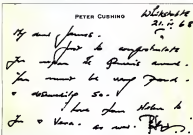 PETER CUSHING
Whitstable
21.IV.68
My dear James.
Just to congratulate
you upon the Queen's award.
You must be very proud.
& deservedly so.
love from Helen &
& Vera. as ever. Peter